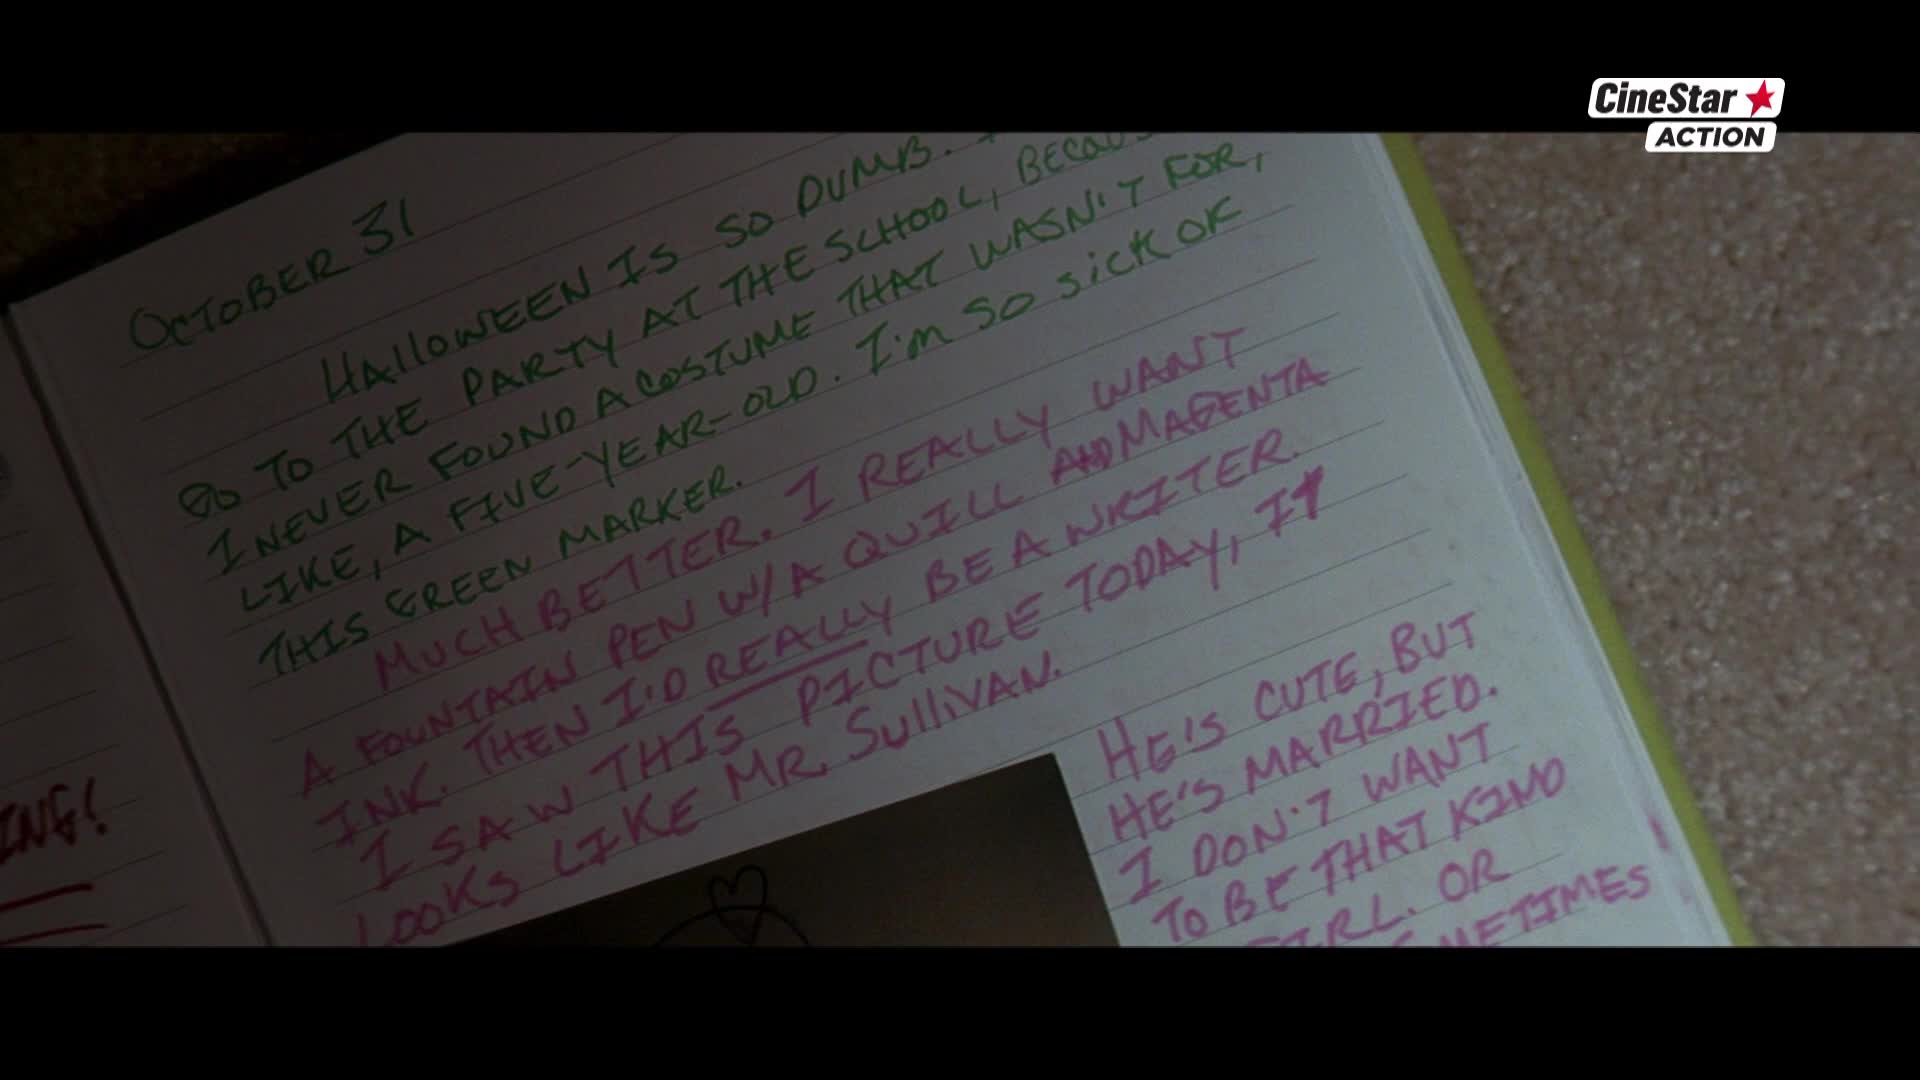 CineStar
ACTION
OCTOBER 31
HALLOWEEN IS SO DUMB.
GO TO THE PARTY AT THE SCHOOL, BECAUS
I NEVER FOUND A COSTUME THAT WASN'T FOR,
LIKE, A FIVE-YEAR-OLD. I'M SO SICK OF
THIS GREEN MARKER.
MUCH BETTER. I REALLY WANT
A FOUNTAIN PEN W/A QUILL AND MAGENTA
INK. THEN I'D REALLY BE A WRITER.
I SAW THIS PICTURE TODAY, IT
LOOKS LIKE MR. SULLIVAN.
HE'S CUTE, BUT
HE'S MARRIED.
I DON'T WANT
TO BE THAT KIND
GIRL. OR
METIMES
ING!